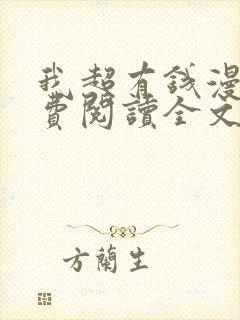 我超有錢漫
費閱讀全文
方蘭生